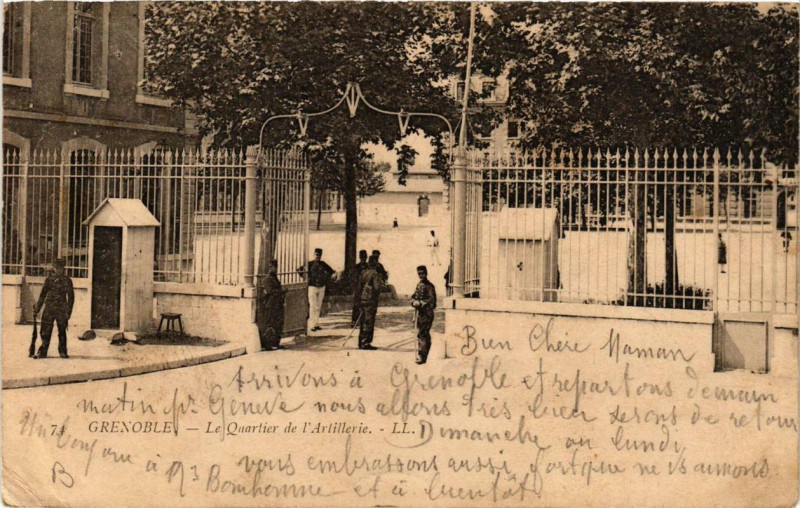 Bien Chère Maman
Arrivons à Grenoble et repartons demain
matin pr Genève nous allons très bien serons de retour
74 GRENOBLE. — Le Quartier de l'Artillerie. - LL.
Dimanche ou lundi
Un bonjour à Mr Bonhomme et à bientôt
vous embrassons aussi fort que ns aimons
B